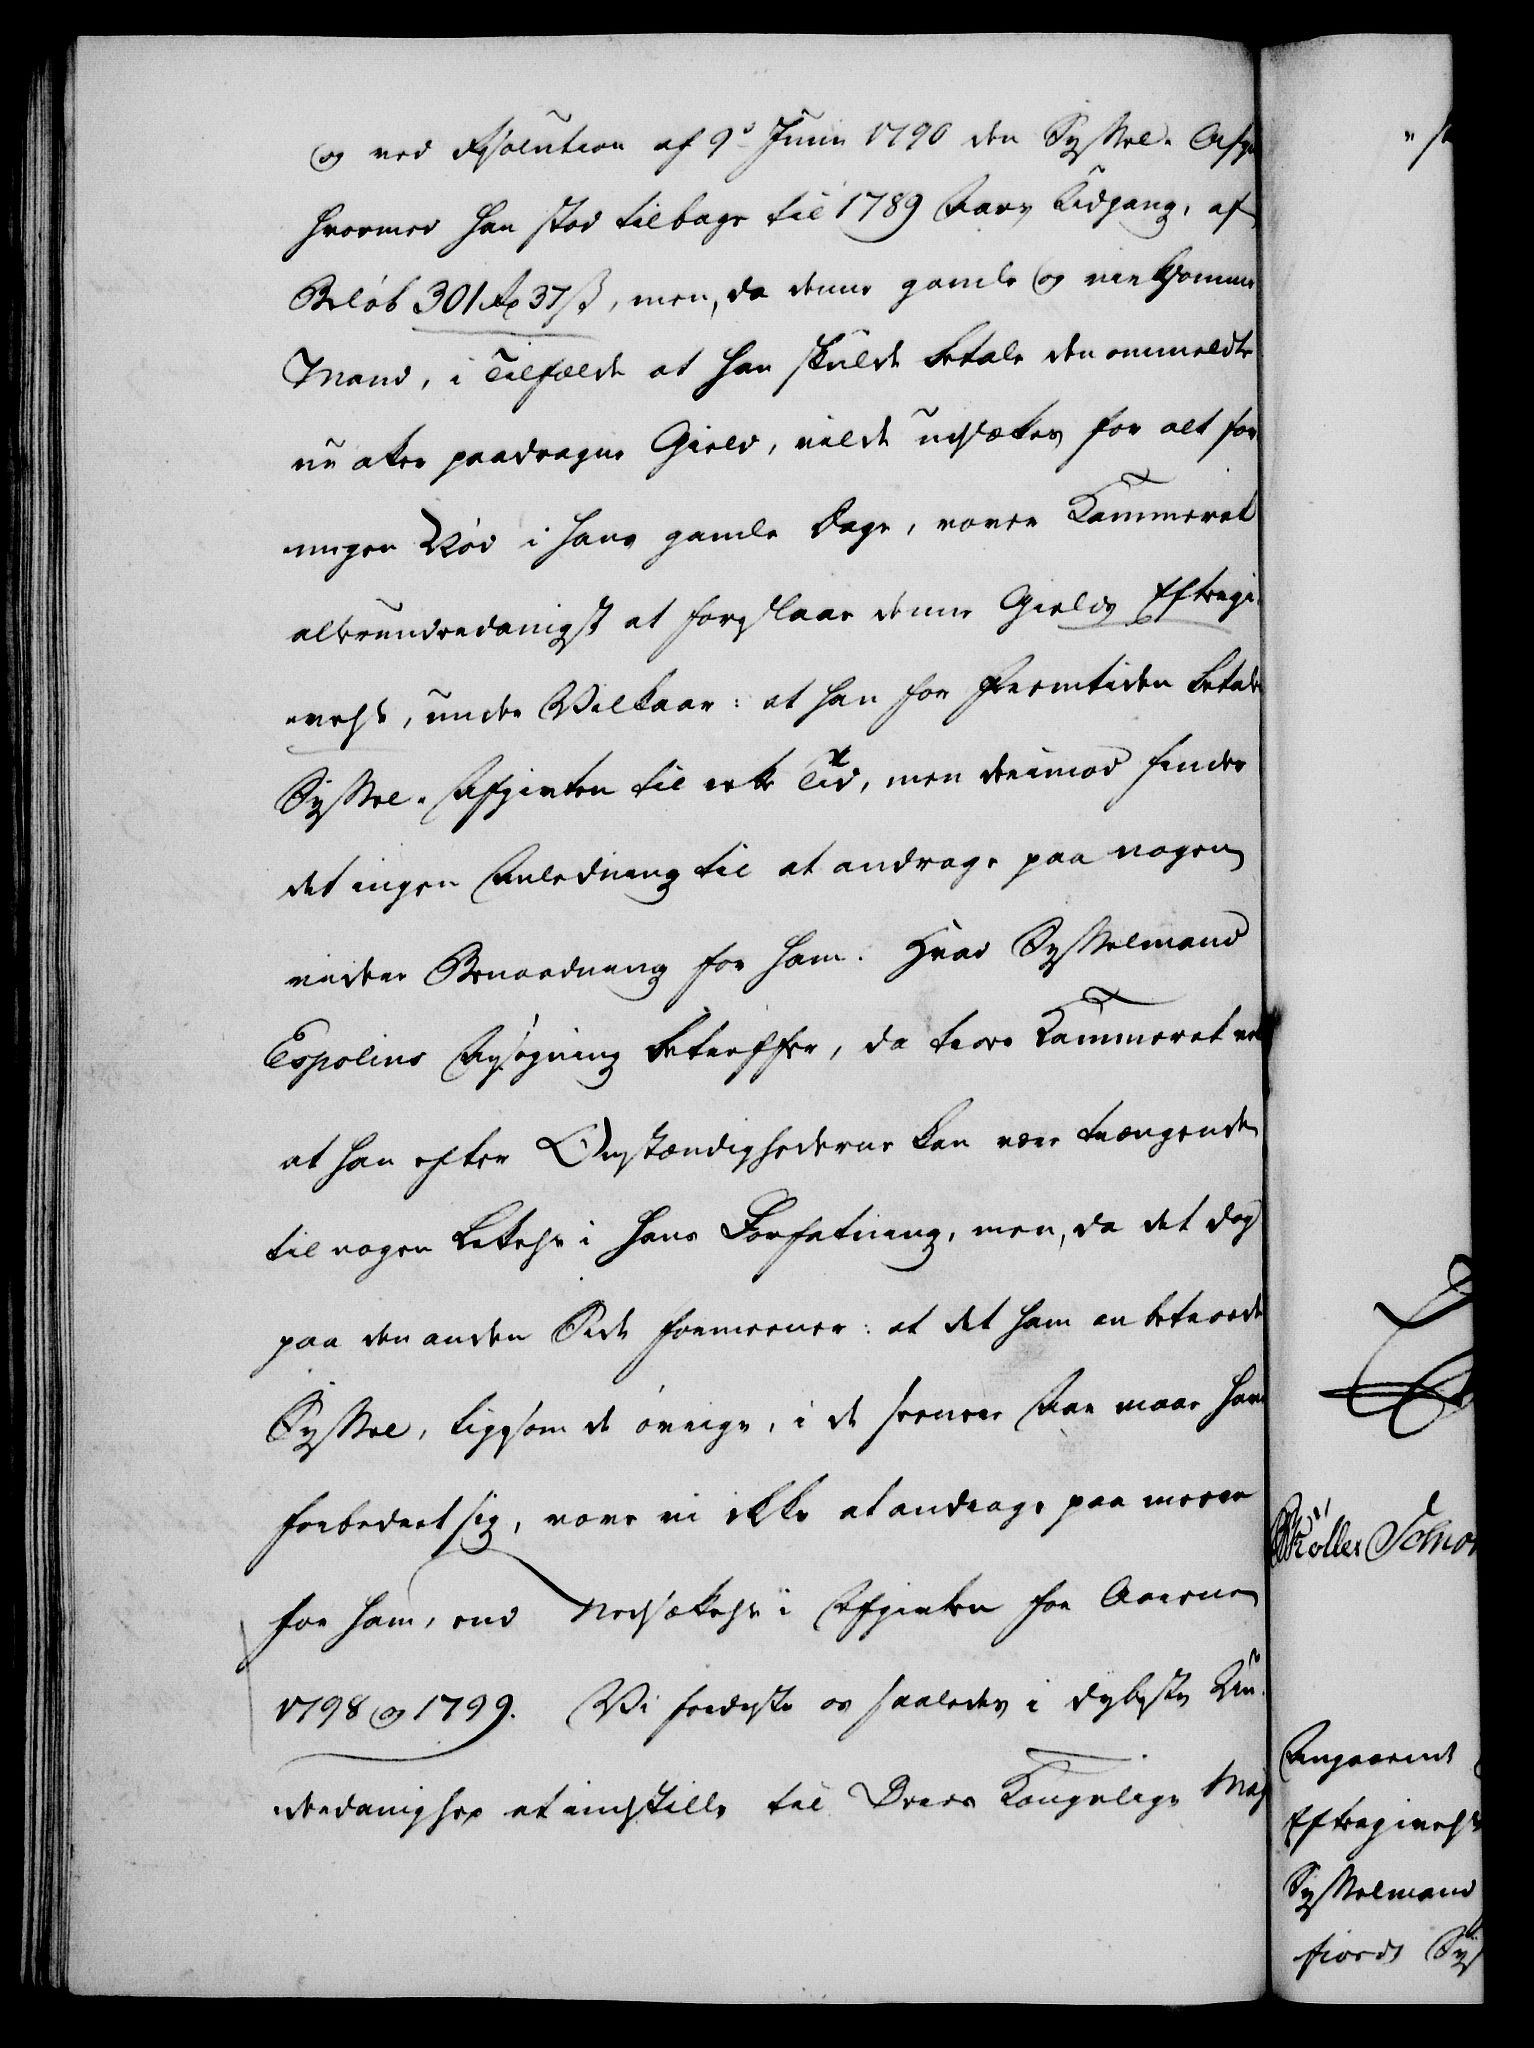 og ved Resolution af 9d Junii 1790 den Syssel-Afgi
hvormed han stod tilbage til 1789 Aars Udgang, af
Beløb 301 Rd 37 ß, men, da denne gamle og virksomme
Mand, i Tilfælde at han skulde betale den ommeldte
nu atter paadragne Gield, vilde udsættes for alt for
megen Nød i hans gamle Dage, vover Kammeret
allerunderdanigst at foreslaae denne Gields Eftergi-
velse, under Vilkaar: at han for Fremtiden betaler
Syssel-Afgivten til rette Tid, men derimod finder
det ingen Anledning til at andrage paa nogen
videre Benaadning for ham. Hvad Sysselmand
Espolins Ansøgning betræffer, da troer Kammeret vel
at han efter Omstændighederne kan være trængende
til nogen Lettelse i hans Forfatning, men, da det dog
paa den anden Side formeener: at det ham anbetroede
Syssel, ligesom de øvrige, i de seenere Aar maae have
forbedret sig, vove vi ikke at andrage paa meere
for ham, end Nedsættelse i Afgivten for Aarene
1798 og 1799. Vi fordriste os saaledes i dybeste Un-
derdanighed at indstille til Deres Kongelige Maj
Møller Schio
Angaaende
Eftergivelse
Sysselmand
fiords Sys